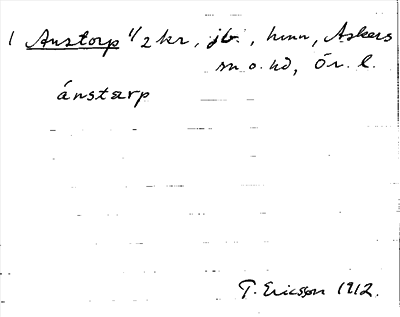 1 Anstorp 1/2 kr, jb., hmn, Askers
sn o. hd, Ör. l.
ánstærp
T. Ericsson 1912.